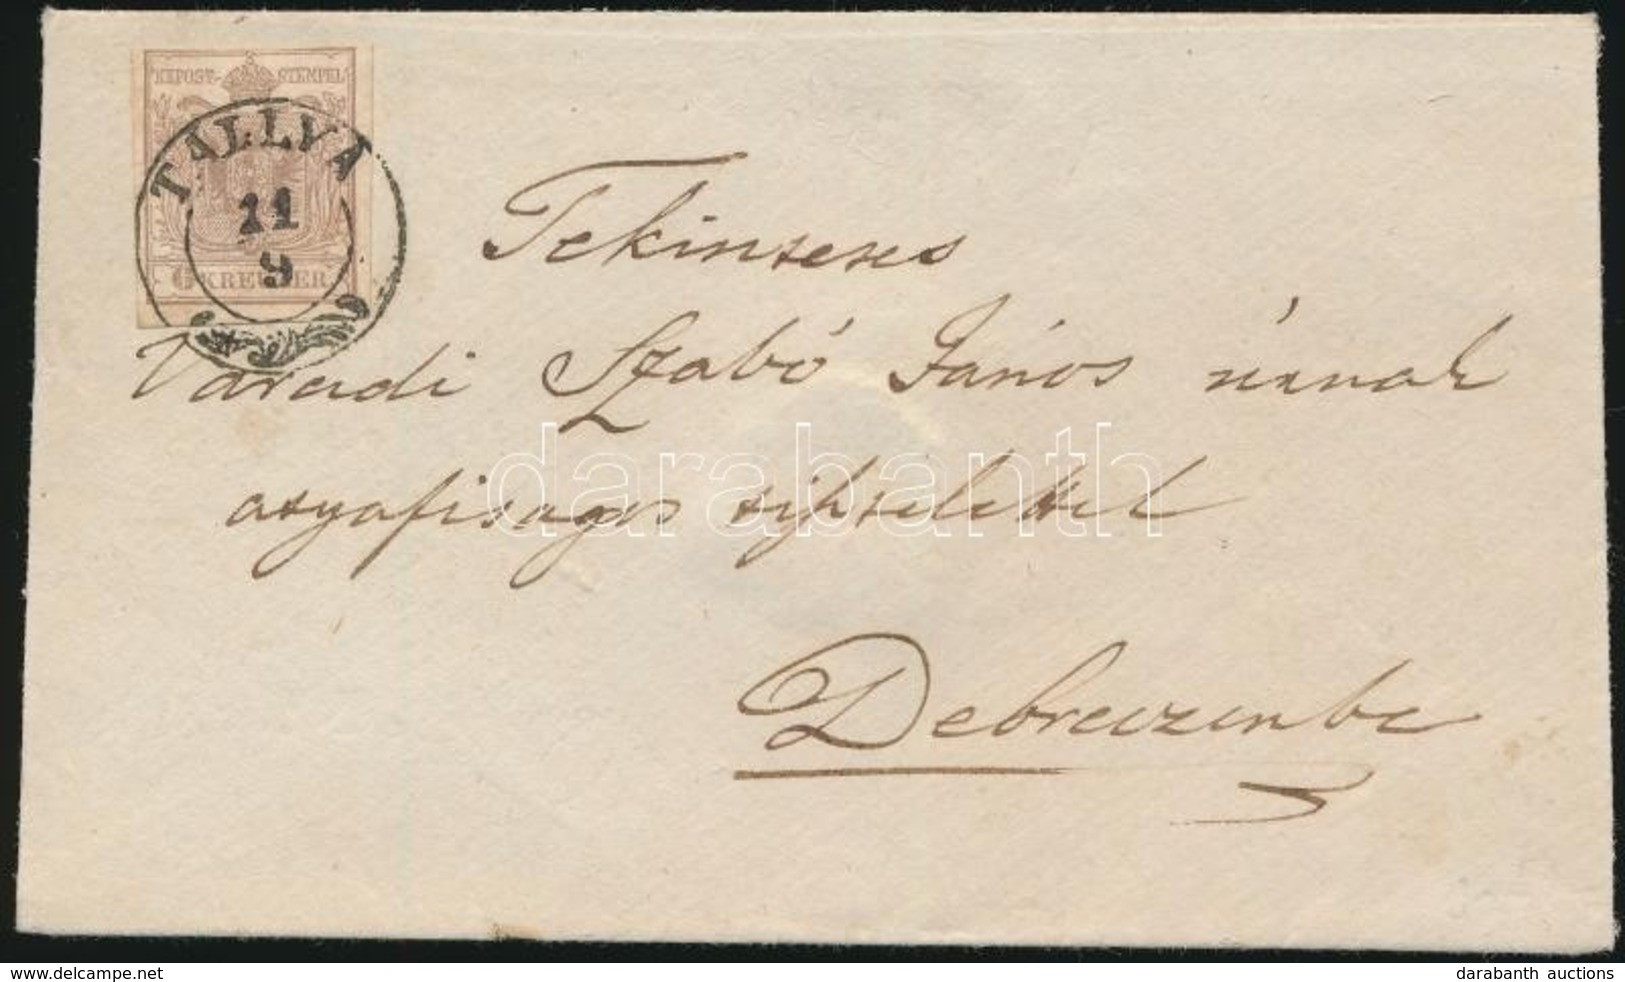 KKPOST-STEMPEL
TÁLLYA
11
9
6 KREUZER
Tekintetes
Váradi Szabó János úrnak
atyafiságos tisztelettel
Debreczenbe
darabanth
© darabanth auctions